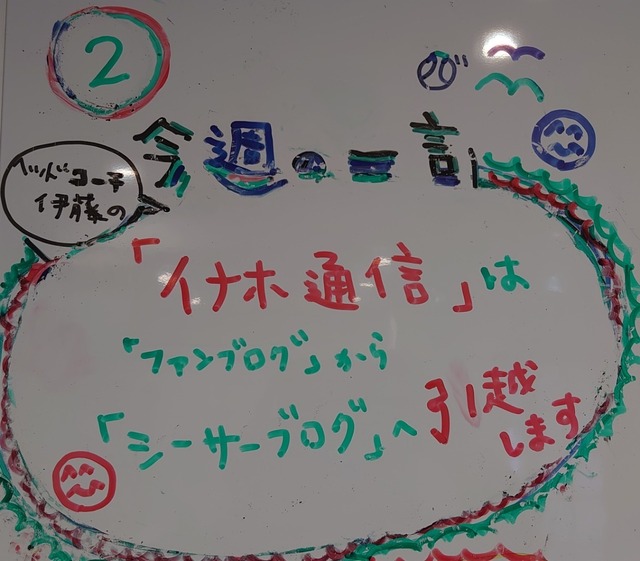 ②
今週の一言
ヘッドコーチ
伊藤の
「イナホ通信」は
「ファンブログ」から
「シーサーブログ」へ引越
します